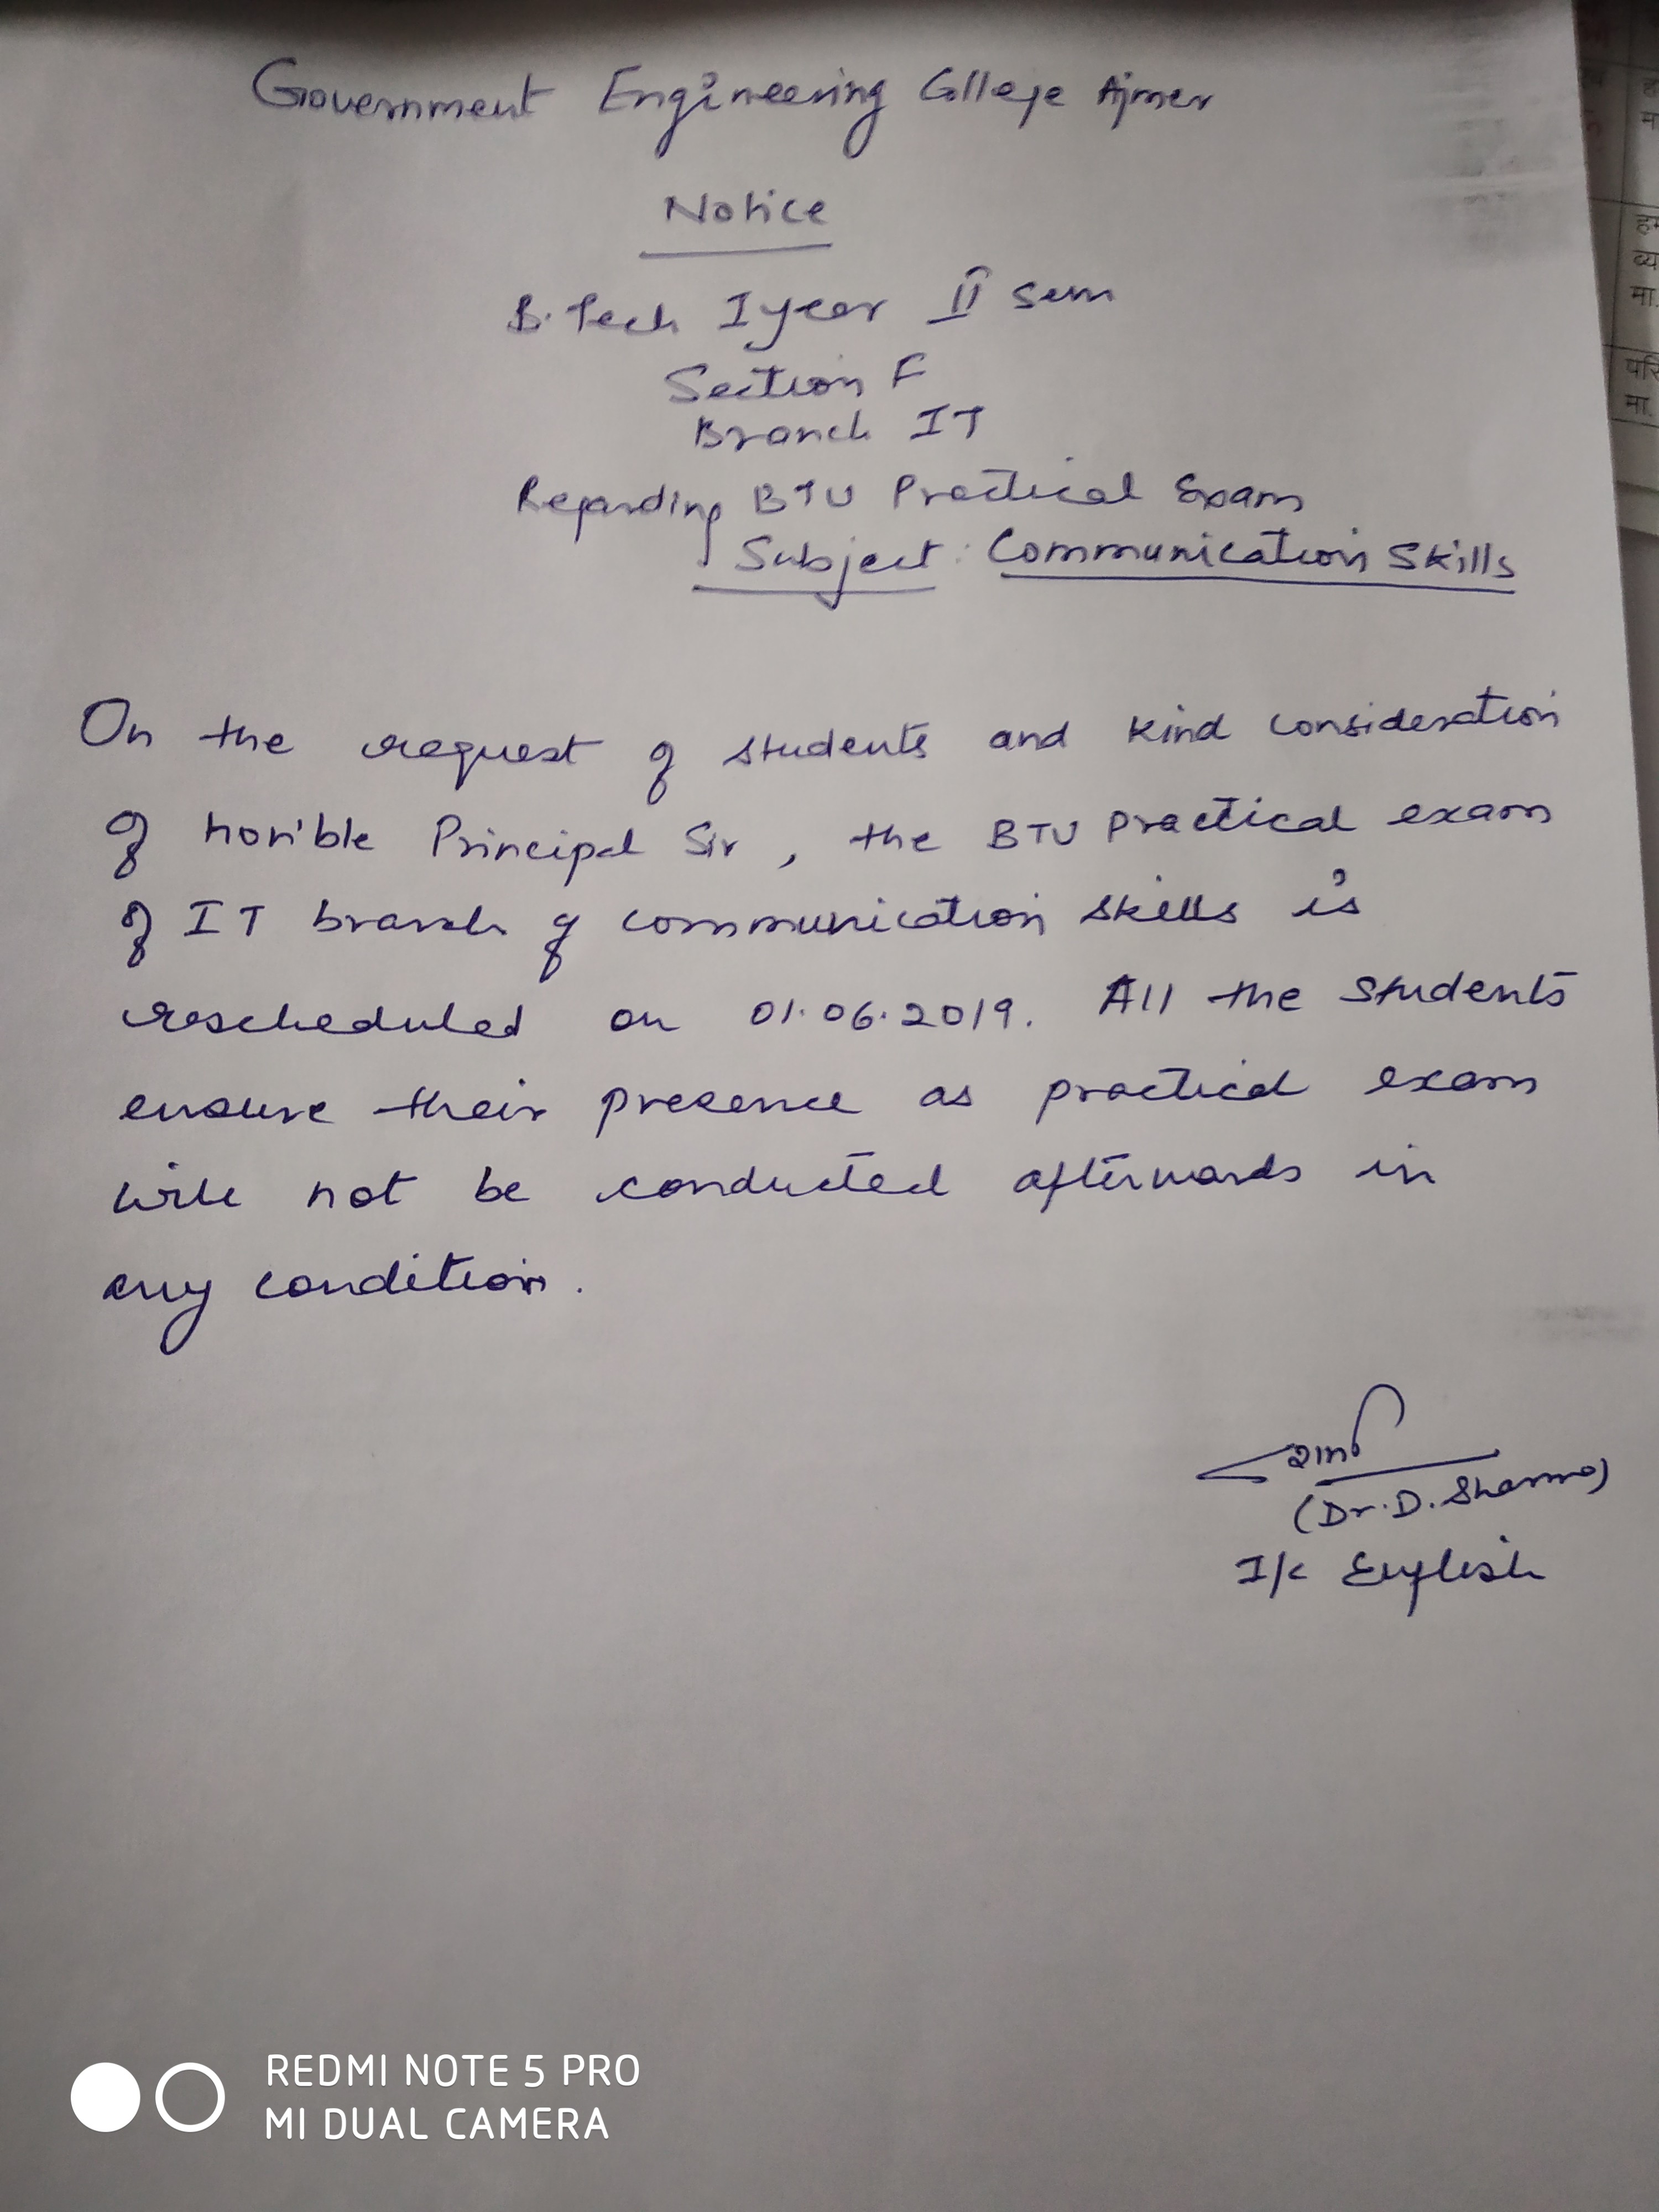 Government Engineering College Ajmer
Notice
B.Tech I year II sem
Section F
Branch IT
Regarding BTU Practical Exam
Subject: Communication Skills
On the request of students and kind consideration
of hon'ble Principal Sir, the BTU Practical exam
of IT branch of communication skills is
rescheduled on 01.06.2019. All the students
ensure their presence as practical exam
will not be conducted afterwards in
any condition.
(Dr. D. Sharma)
I/c English
REDMI NOTE 5 PRO
MI DUAL CAMERA